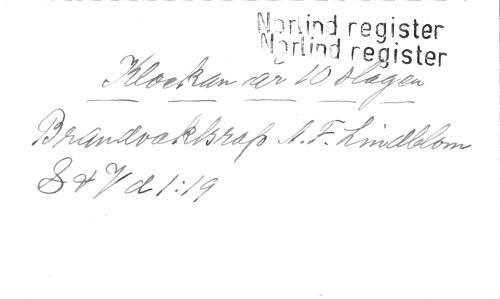 Norlind register
Norlind register
Klockan är 10 slagen
Brandvaktsrop A.F. Lindblom
S & V d 1:19